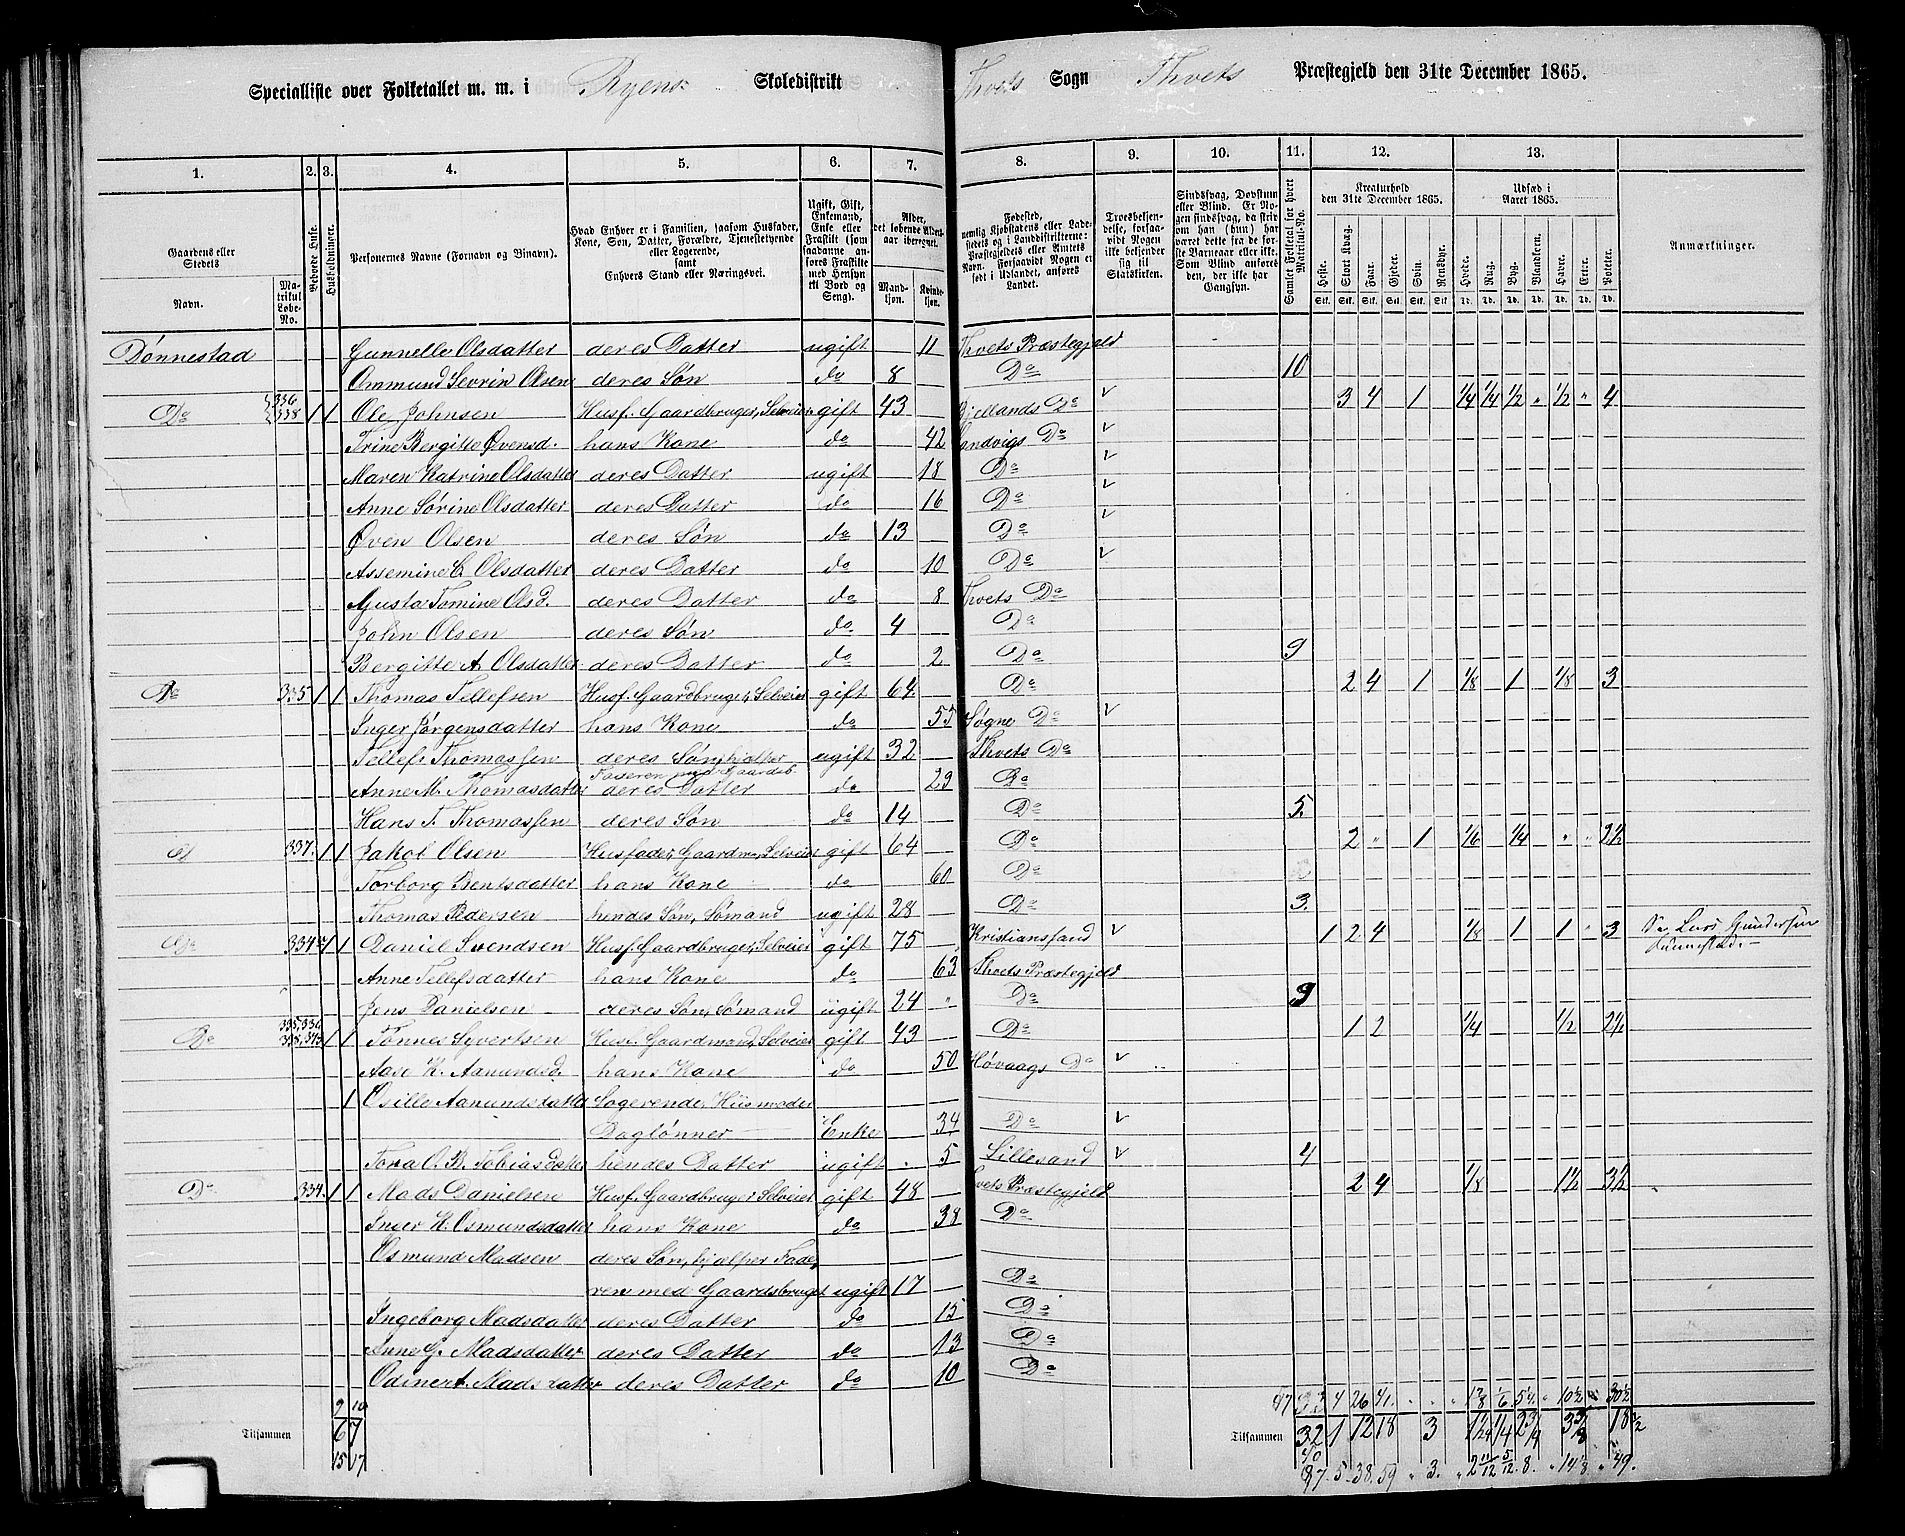 Specialliste over Folketallet m. m. i Ryens Skoledistrikt Thvets Sogn Thvets Præstegjeld den 31te December 1865.
1. 2. 3. 4. 5. 6. 7. 8. 9. 10. 11. 12. 13.
Gaardens eller Stedets
Navn.
Matrikul Løbe-No.
Bebodde Huse.
Husholdninger.
Personernes Navne (Fornavn og Binavn).
Hvad Enhver er i Familien, saasom Husfader, Kone, Søn, Datter, Forældre, Tjenestetyende eller Logerende, samt Enhvers Stand eller Næringsvei.
Ugift, Gift, Enkemand, Enke eller Fraskilt (som saadanne anføres Fraskilte med Hensyn til Bord og Seng).
Alder, det løbende Alders-aar iberegnet.
Mandkjøn. Kvindekjøn.
Fødested, nemlig Kjøbstadens eller Ladestedets og i Landdistrikterne: Præstegjeldets eller Amtets Navn. Forsaavidt Nogen er født i Udlandet, anføres Landet.
Troesbekjendelse, forsaavidt Nogen ikke bekjender sig til Statskirken.
Sindssvag, Døvstum eller Blind. Er Nogen sindssvag, da skrives det, om han (hun) har været dette fra de første Barneaar eller ikke. Som Blind anføres den, der ikke har Gangsyn.
Samlet Folketal for hvert Matrikul-No.
Kreaturhold den 31te December 1865.
Heste. Stort Kvæg. Faar. Gjeder. Svin. Rensdyr.
Udsæd i Aaret 1865.
Hvede. Rug. Byg. Blandkorn. Havre. Erter. Poteter.
Anmærkninger.
Dønnestad Gunnelle Olsdatter deres Datter ugift 11 Thvets Præstegjeld
Ommund Sevrin Olsen deres Søn do 8 Do 10
Do 336 338 1 1 Ole Johnsen Husf. Gaardbruger, Selveier gift 43 Do 3 4 1 1/4 1/4 1/2 " 1/2 " 4
Trine Bergitte Øvensd. hans Kone do 42 Landvigs Do
Maren Katrine Olsdatter deres Datter ugift 18 Do
Anne Sørine Olsdatter deres Datter do 16 Do
Øven Olsen deres Søn do 13 Do
Assemine C. Olsdatter deres Datter do 10 Do
Gusta Tomine Olsd. deres Datter do 8 Thvets Do
John Olsen deres Søn do 4 Do
Bergitte A. Olsdatter deres Datter do 2 Do 9
Do 335 1 1 Thomas Tellefsen Husf. Gaardbruger, Selveier gift 64 Do 2 4 1 1/8 1 1/8 3
Inger Jørgensdatter hans Kone do 55 Søgne Do
Tellef Thomassen deres Søn, hjælper Faderen med Gaardsb. ugift 32 Thvets Do
Anne M. Thomasdatter deres Datter do 29 Do
Hans T. Thomassen deres Søn do 14 Do 5.
337. 1 1 Jakob Olsen Husfader, Gaardm, Selveier gift 64 Do 2 " 1 1/6 1/4 " " 2 1/2
Torborg Bentsdatter hans Kone do 60 Do
Thomas Pedersen hendes Søn, Sømand ugift 28 Do 3.
Do 334 1 1 Daniel Svendsen Husf. Gaardbruger, Selveier gift 75 Kristianssand 1 2 4 1/8 1 1 " 3 Lars Gundersen
Anne Tellefsdatter hans Kone do 63 Thvets Præstegjeld
Jens Danielsen deres Søn, Sømand ugift 24 " Do
Do 1 1 Tønnes Syvertsen Husf. Gaardmand, Selveier gift 43 Do 1 2 1/4 1/2 2 1/2
Aase K. Aanundsd. hans Kone do 50 Høvaags Do
1 Osille Aanundsdatter Logerende, Husmoder
Daglønner Enke 34 Do
Tora O. B. Tobiasdatter hendes Datter ugift 5 Lillesand 4
Do 334. 1 1 Mads Danielsen Husf. Gaardbruger, Selveier gift 48 Thvets Præstegjeld 2 4 1/8 1 1/2 3 1/2
Inger K. Osmundsdatter hans Kone do 38 Do
Osmund Madsen deres Søn, hjælper Fade-
ren med Gaardsbruget ugift 17 Do
Ingeborg Madsdatter deres Datter do 15 Do
Anne G. Madsdatter deres Datter do 13 Do
Odine A. Madsdatter deres Datter do 10 Do
9 10 47 4 26 41
Tilsammen 6 7 Tilsammen 32 1 12 18 3
15 17 87. 5. 38. 59 " 3. " 2 11/12 5/12 8. " 14 " 49.